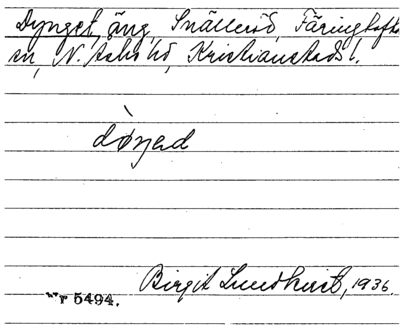 Dynget, äng, Snälleröd, Färingtofta
sn, N. Åsbo hd, Kristianstads l.
dὸŋəd
Birgit Lundkvist, 1936.
Nr 5494.